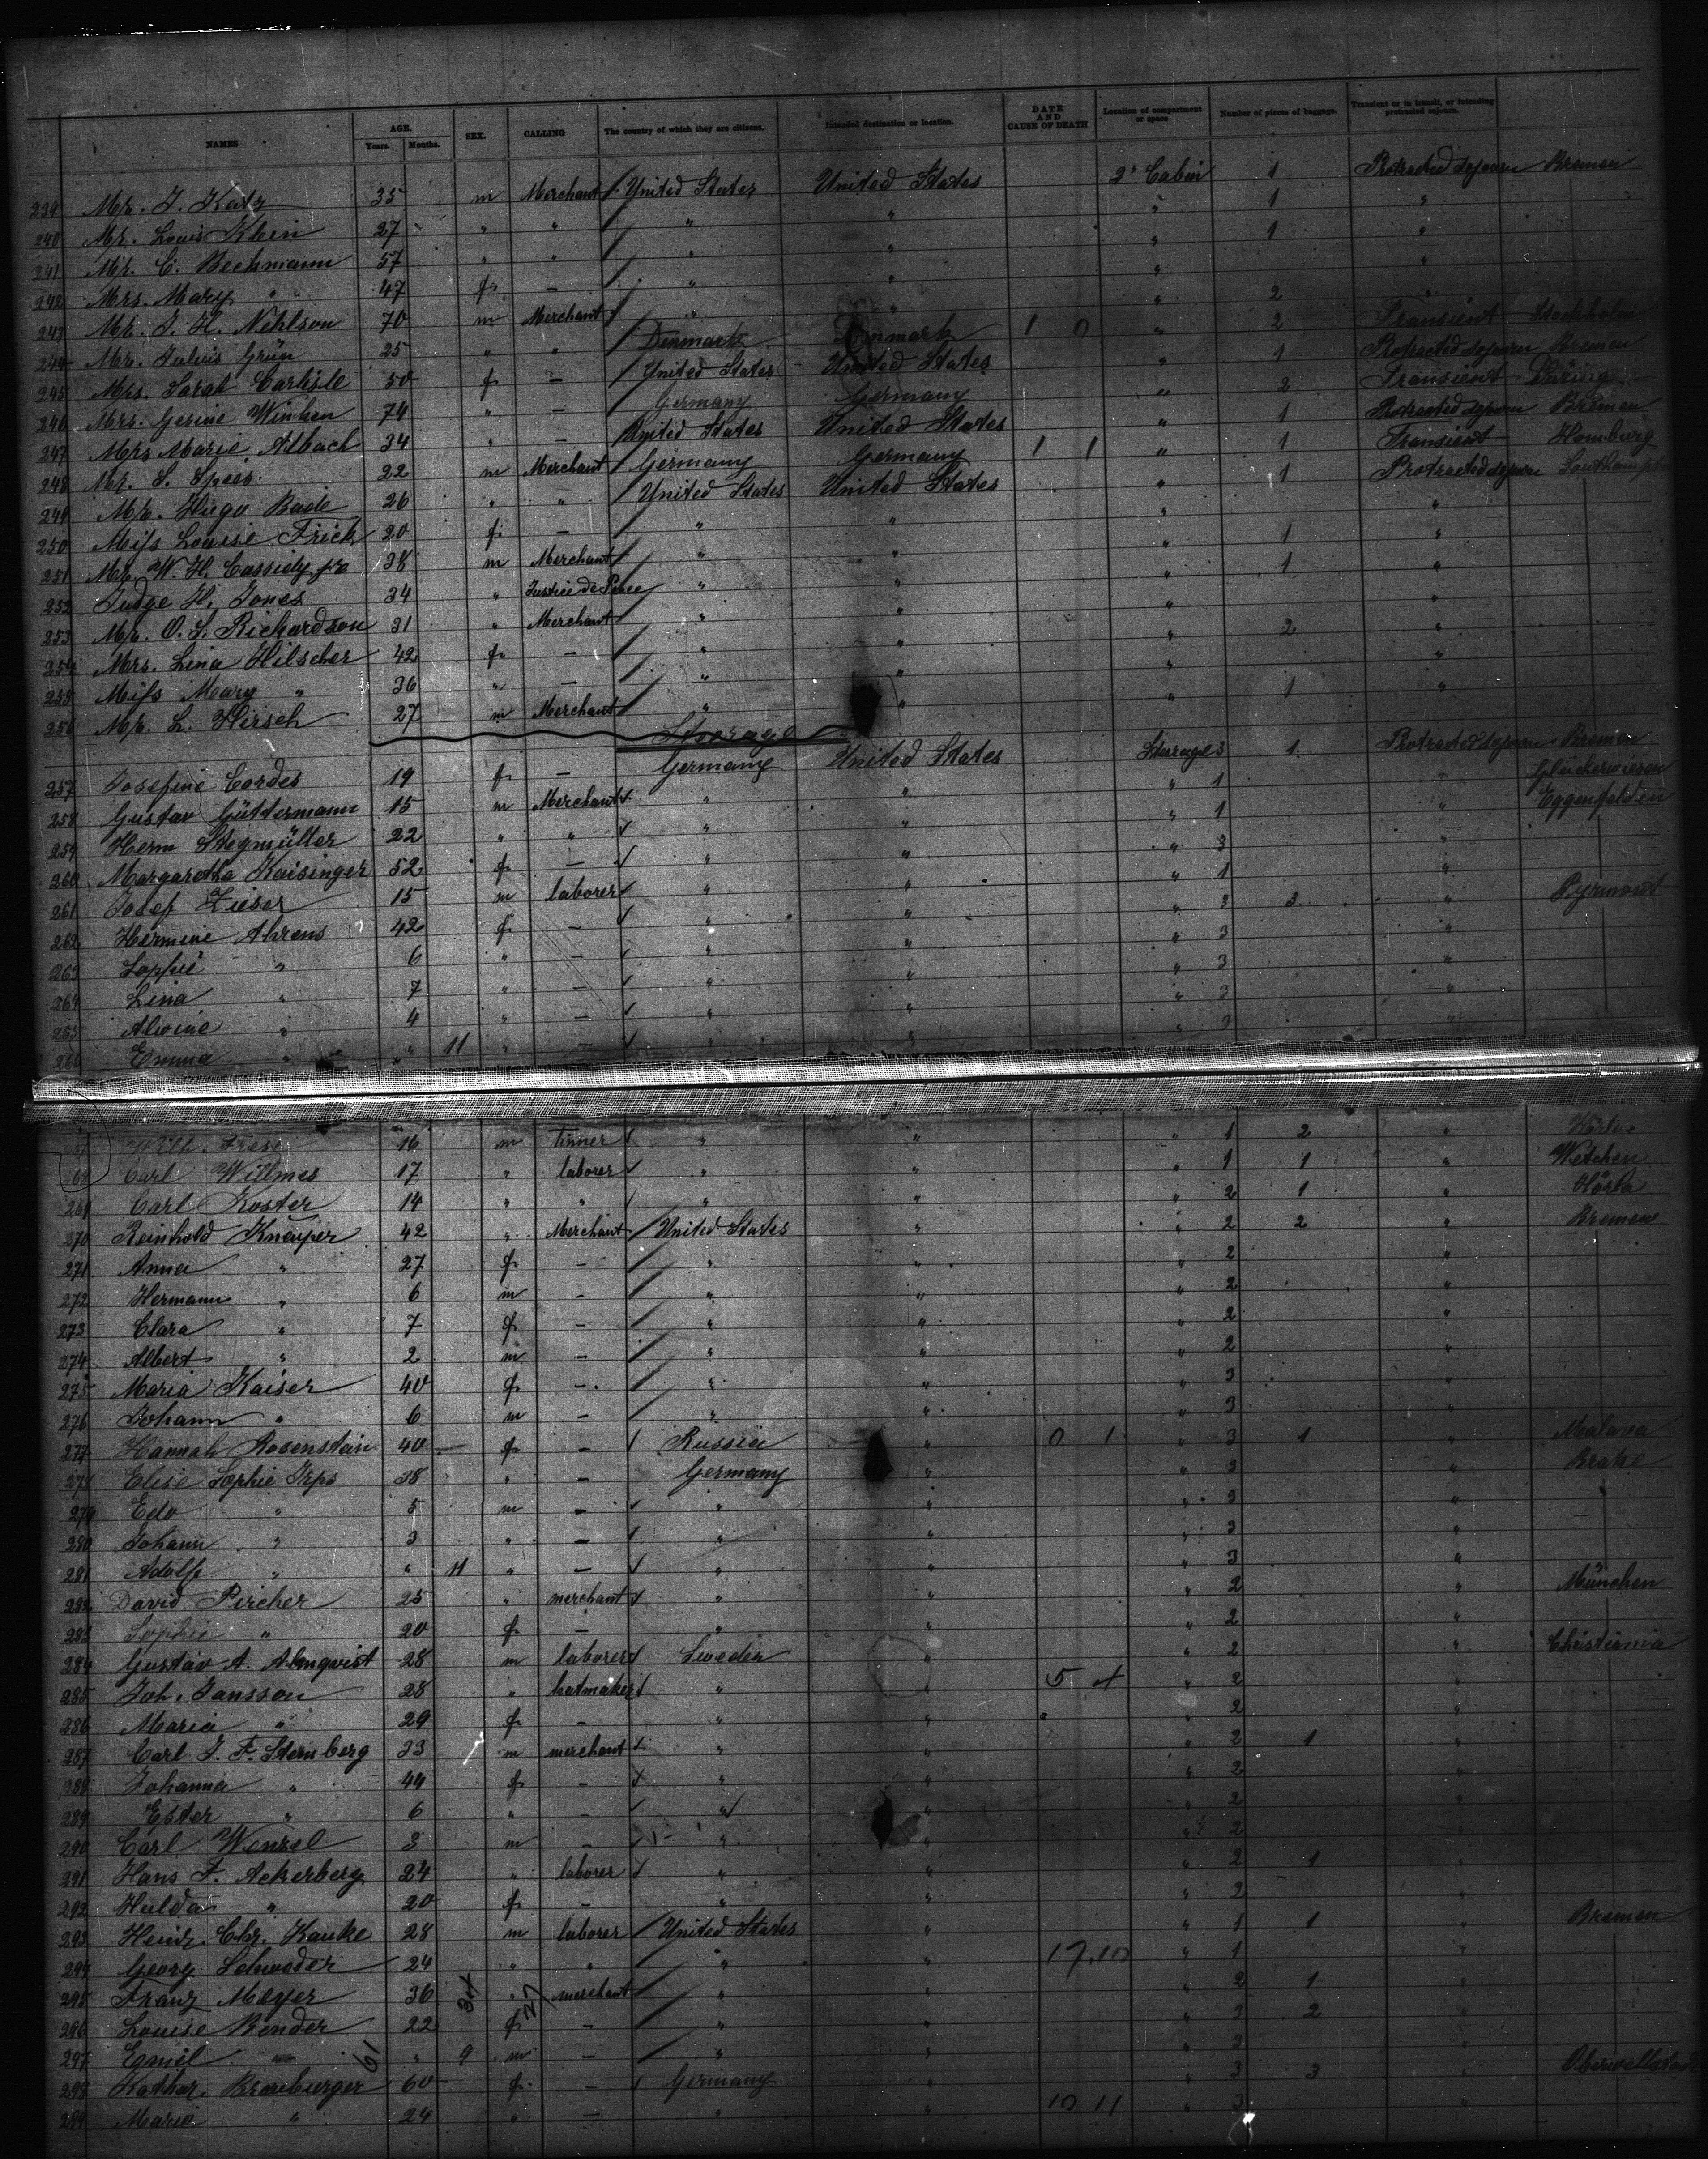 NAMES AGE. Years. Months. SEX. CALLING The country of which they are citizens. Intended destination or location. DATE AND CAUSE OF DEATH Location of compartment or space Number of pieces of baggage. Transient or in transit, or intending protracted sojourn.
239 Mr. J. Katz 35 m Merchant United States United States 2d Cabin 1 Protracted sojourn Bremen
240 Mr. Louis Klein 27 " " " " " 1 "
241 Mr. C. Bechmann 57 " " " " " 1 "
242 Mrs. Mary " 47 f - " " " "
243 Mr. J. H. Nehlson 70 m Merchant " " " 2 "
244 Mr. Julius Grün 25 " " Denmark Denmark 1 0 " 2 Transient Stockholm
245 Mrs. Sarah Carlisle 50 f - United States United States " 1 Protracted sojourn Bremen
246 Mrs. Gesine Winken 74 " - Germany Germany " 2 Transient
247 Mrs Marie Albach 34 " - United States United States " 1 Protracted sojourn Bremen
248 Mr. S. Speis 22 m Merchant Germany Germany 1 1 " 1 Transient Homburg
249 Mr. Hugo Bade 26 " " United States United States " 1 Protracted sojourn Southampton
250 Miss Louise Frich 20 f - " " " "
251 Mr. W. H. Cassidy jr 38 m Merchant " " " 1 "
252 Judge H. Jones 34 " Justice de Peace " " " 1 "
253 Mr. O. S. Richardson 31 " Merchant " " " "
254 Mrs. Lina Hilscher 42 f - " " " 2 "
255 Miss Mary " 36 " - " " " "
256 Mr. L. Hirsch 27 m Merchant " " " 1 "
Steerage
257 Josefine Cordes 19 f - Germany United States Steerage 3 1 Protracted sojourn Bremen
258 Gustav Güttermann 15 m Merchant " " " 1 "
259 Herm Stegmüller 22 " " " " " 1 " Eggenfelden
260 Margaretha Kaisinger 52 f - " " " 3 "
261 Josef Zieser 15 m laborer " " " 1 "
262 Hermine Ahrens 42 f - " " " 3 3 " Pyrmont
263 Sophie " 6 " - " " " 3 "
264 Lina " 7 " - " " " 3 "
265 Alwine " 4 " - " " " 3 "
266 Emma " " 11 " - " " " 3 "
Wilh. Frese 16 m tinner " " " 1 2 "
Carl Willmes 17 " laborer " " " 1 1 " Wetchen
269 Carl Koster 14 " " " " " 2 1 "
270 Reinhold Kneiper 42 " Merchant United States " " 2 2 " Bremen
271 Anna " 27 f - " " " 2 "
272 Hermann " 6 m - " " " 2 "
273 Clara " 7 f - " " " 2 "
274 Albert " 2 m - " " " 2 "
275 Maria Kaiser 40 f - " " " 3 "
276 Johann " 6 m - " " " 3 "
277 Hannah Rosenstein 40 f - Russia " 0 1 " 3 1 " Malawa
278 Elise Sophie Irps 38 " - Germany " " 3 " Brake
279 Edo " 5 m - " " " 3 "
280 Johann " 3 " - " " " 3 "
281 Adolf " " 11 " - " " " 3 "
282 David Pircher 25 " merchant " " " 2 " München
283 Sophie " 20 f - " " " 2 "
284 Gustav A. Almqvist 28 m laborer Sweden " " 2 " Christiania
285 Joh. Jansson 28 " hatmaker " " 5 4 " 2 "
286 Maria " 29 f - " " " 2 "
287 Carl J. F. Sternberg 33 m merchant " " " 2 1 "
288 Johanna " 44 f - " " " 2 "
289 Ester " 6 " - " " " 2 "
290 Carl Wenzel 3 m - " " " 2 "
291 Hans F. Ackerberg 24 " laborer " " " 2 1 "
292 Hulda " 20 f - " " " 2 "
293 Heinr. Chr. Kauke 28 m laborer United States " " 1 1 " Bremen
294 Georg Schroder 24 " " " " 17.10 " 1 "
295 Franz Meyer 36 " merchant " " " 2 1 "
296 Louise Bender 22 f - " " " 3 2 "
297 Emil " " 9 m - " " " 3 "
298 Kathar. Bromburger 60 f - Germany " " 3 3 "
299 Marie " 24 " - " " 10 11 " 3 "
61 34 27